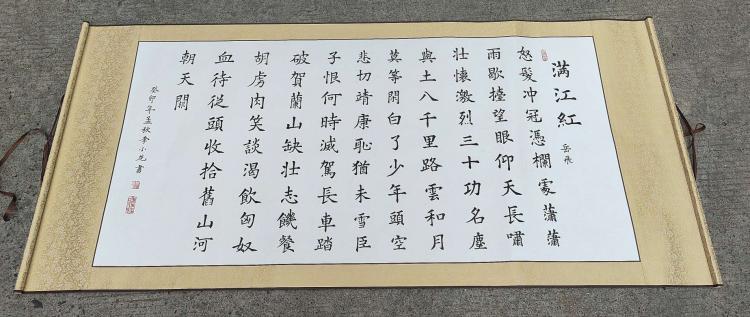 满江紅
岳飛
怒髮冲冠憑欄處瀟瀟
雨歇擡望眼仰天長嘯
壯懷激烈三十功名塵
與土八千里路雲和月
莫等閑白了少年頭空
悲切靖康恥猶未雪臣
子恨何時滅駕長車踏
破賀蘭山缺壯志饑餐
胡虜肉笑談渴飲匈奴
血待從頭收拾舊山河
朝天闕
癸卯年孟秋李小書